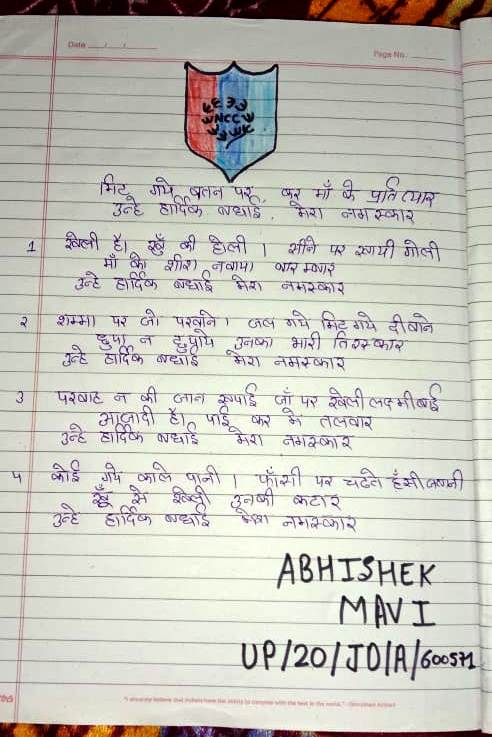 Date
Page No.
NCC
मिट गये वतन पर, कर माँ के प्रति प्यार
उन्हे हार्दिक बधाई, मेरा नमस्कार
1 खेली है। खूँ की होली । सीने पर खायी गोली
माँ को शीश नवाया बार म्बार
उन्हे हार्दिक बधाई मेरा नमस्कार
२ शम्मा पर जो परवाने । जल गये मिट गये दीवाने
छुपा न छुपाये उनका भारी तिरस्कार
उन्हे हार्दिक बधाई मेरा नमस्कार
3 परवाह न की जान पर खेली लक्ष्मीबाई
आजादी है। पाई कर में तलवार
उन्हे हार्दिक बधाई मेरा नमस्कार
4 कोई गये काले पानी । फाँसी पर चढते हँसी
खूँ से खेली उनकी कटार
उन्हे हार्दिक बधाई मेरा नमस्कार
ABHISHEK
MAVI
UP/20/JD/A/600571